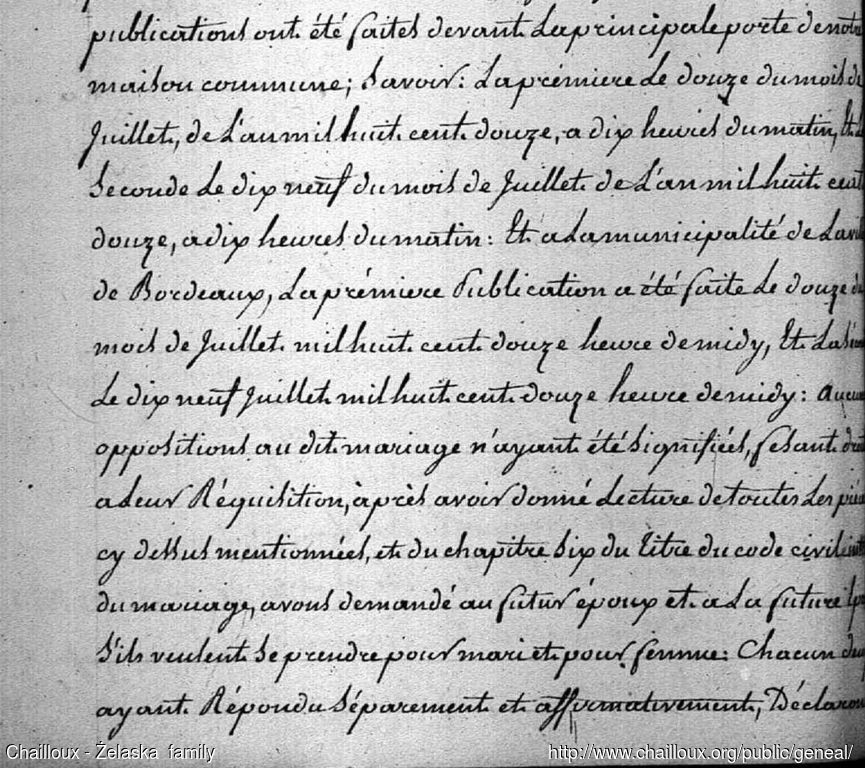 publications ont été faites devant la principale porte de notre
maison commune; Savoir: La prémiere Le douze du mois de
Juillet, de L'an mil huit cent douze, a dix heures du matin, Et
Seconde Le dix neuf du mois de Juillet de L'an mil huit cent
douze, a dix heures du matin: Et a La municipalité de La
de Bordeaux, La prémiere Publication a été faite Le douze du
mois de Juillet mil huit cent douze heure de midy, Et La
Le dix neuf Juillet mil huit cent douze heure de midy: Aucun
oppositions au dit mariage n'ayant été Signifiées, fesant droit
a Leur Réquisition, après avoir donné Lecture de toutes Les
cy dessus mentionnées, et du chapitre Six du titre du code civil
du mariage, avons demandé au futur époux et a La future
S'ils veulent Se prendre pour mari et pour femme: Chacun
ayant Répondu Séparement et affirmativement, Déclarons
Chailloux - Żelaska family
http://www.chailloux.org/public/geneal/